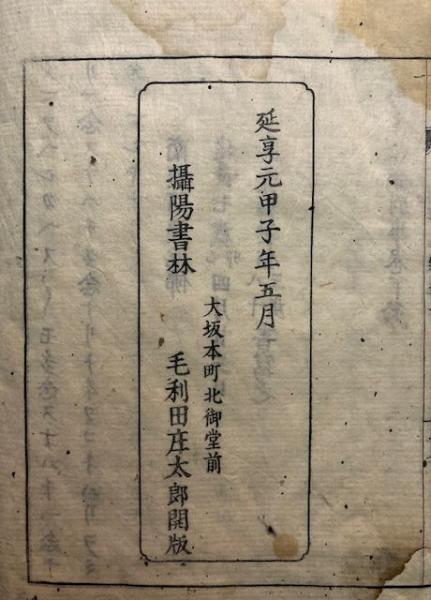 延享元甲子年五月
大坂本町北御堂前
攝陽書林 毛利田庄太郎開版